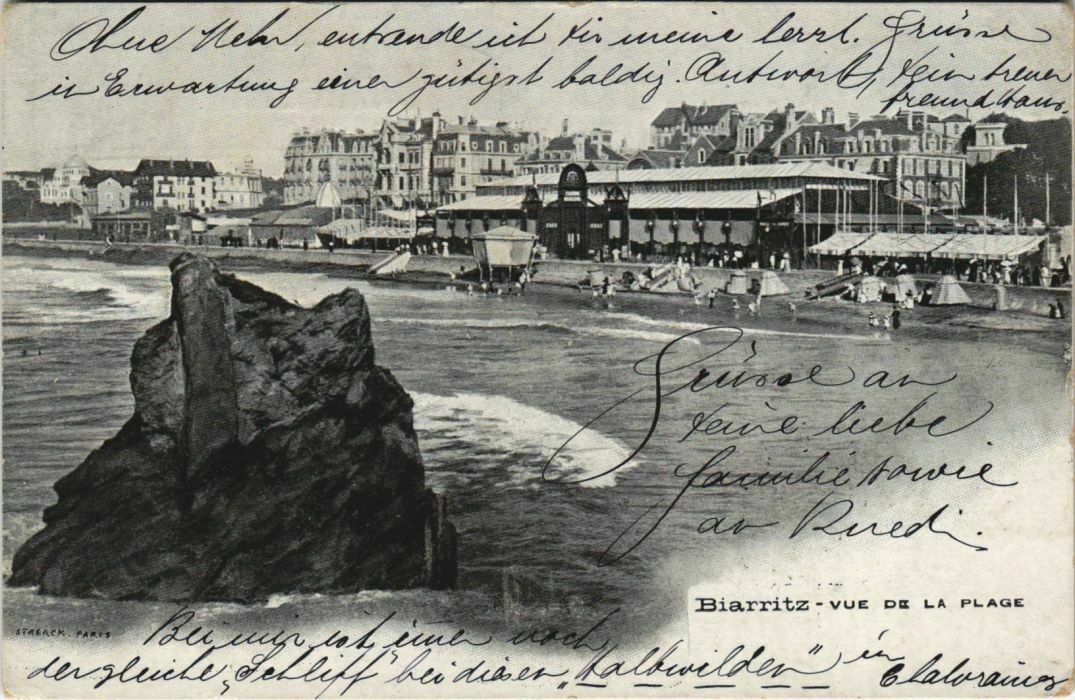 Ohne Mehr, entsende ich dir meine herzl. Grüsse
in Erwartung einer gütigst baldig. Antwort, dein treuer
freund Hans.
Grüsse an
deine liebe
familie sowie
an Ruedi.
Biarritz - VUE DE LA PLAGE
STRERCK. PARIS
Bei mir ist immer noch
der gleiche „Schliff" bei diesen „Halbwilden" in